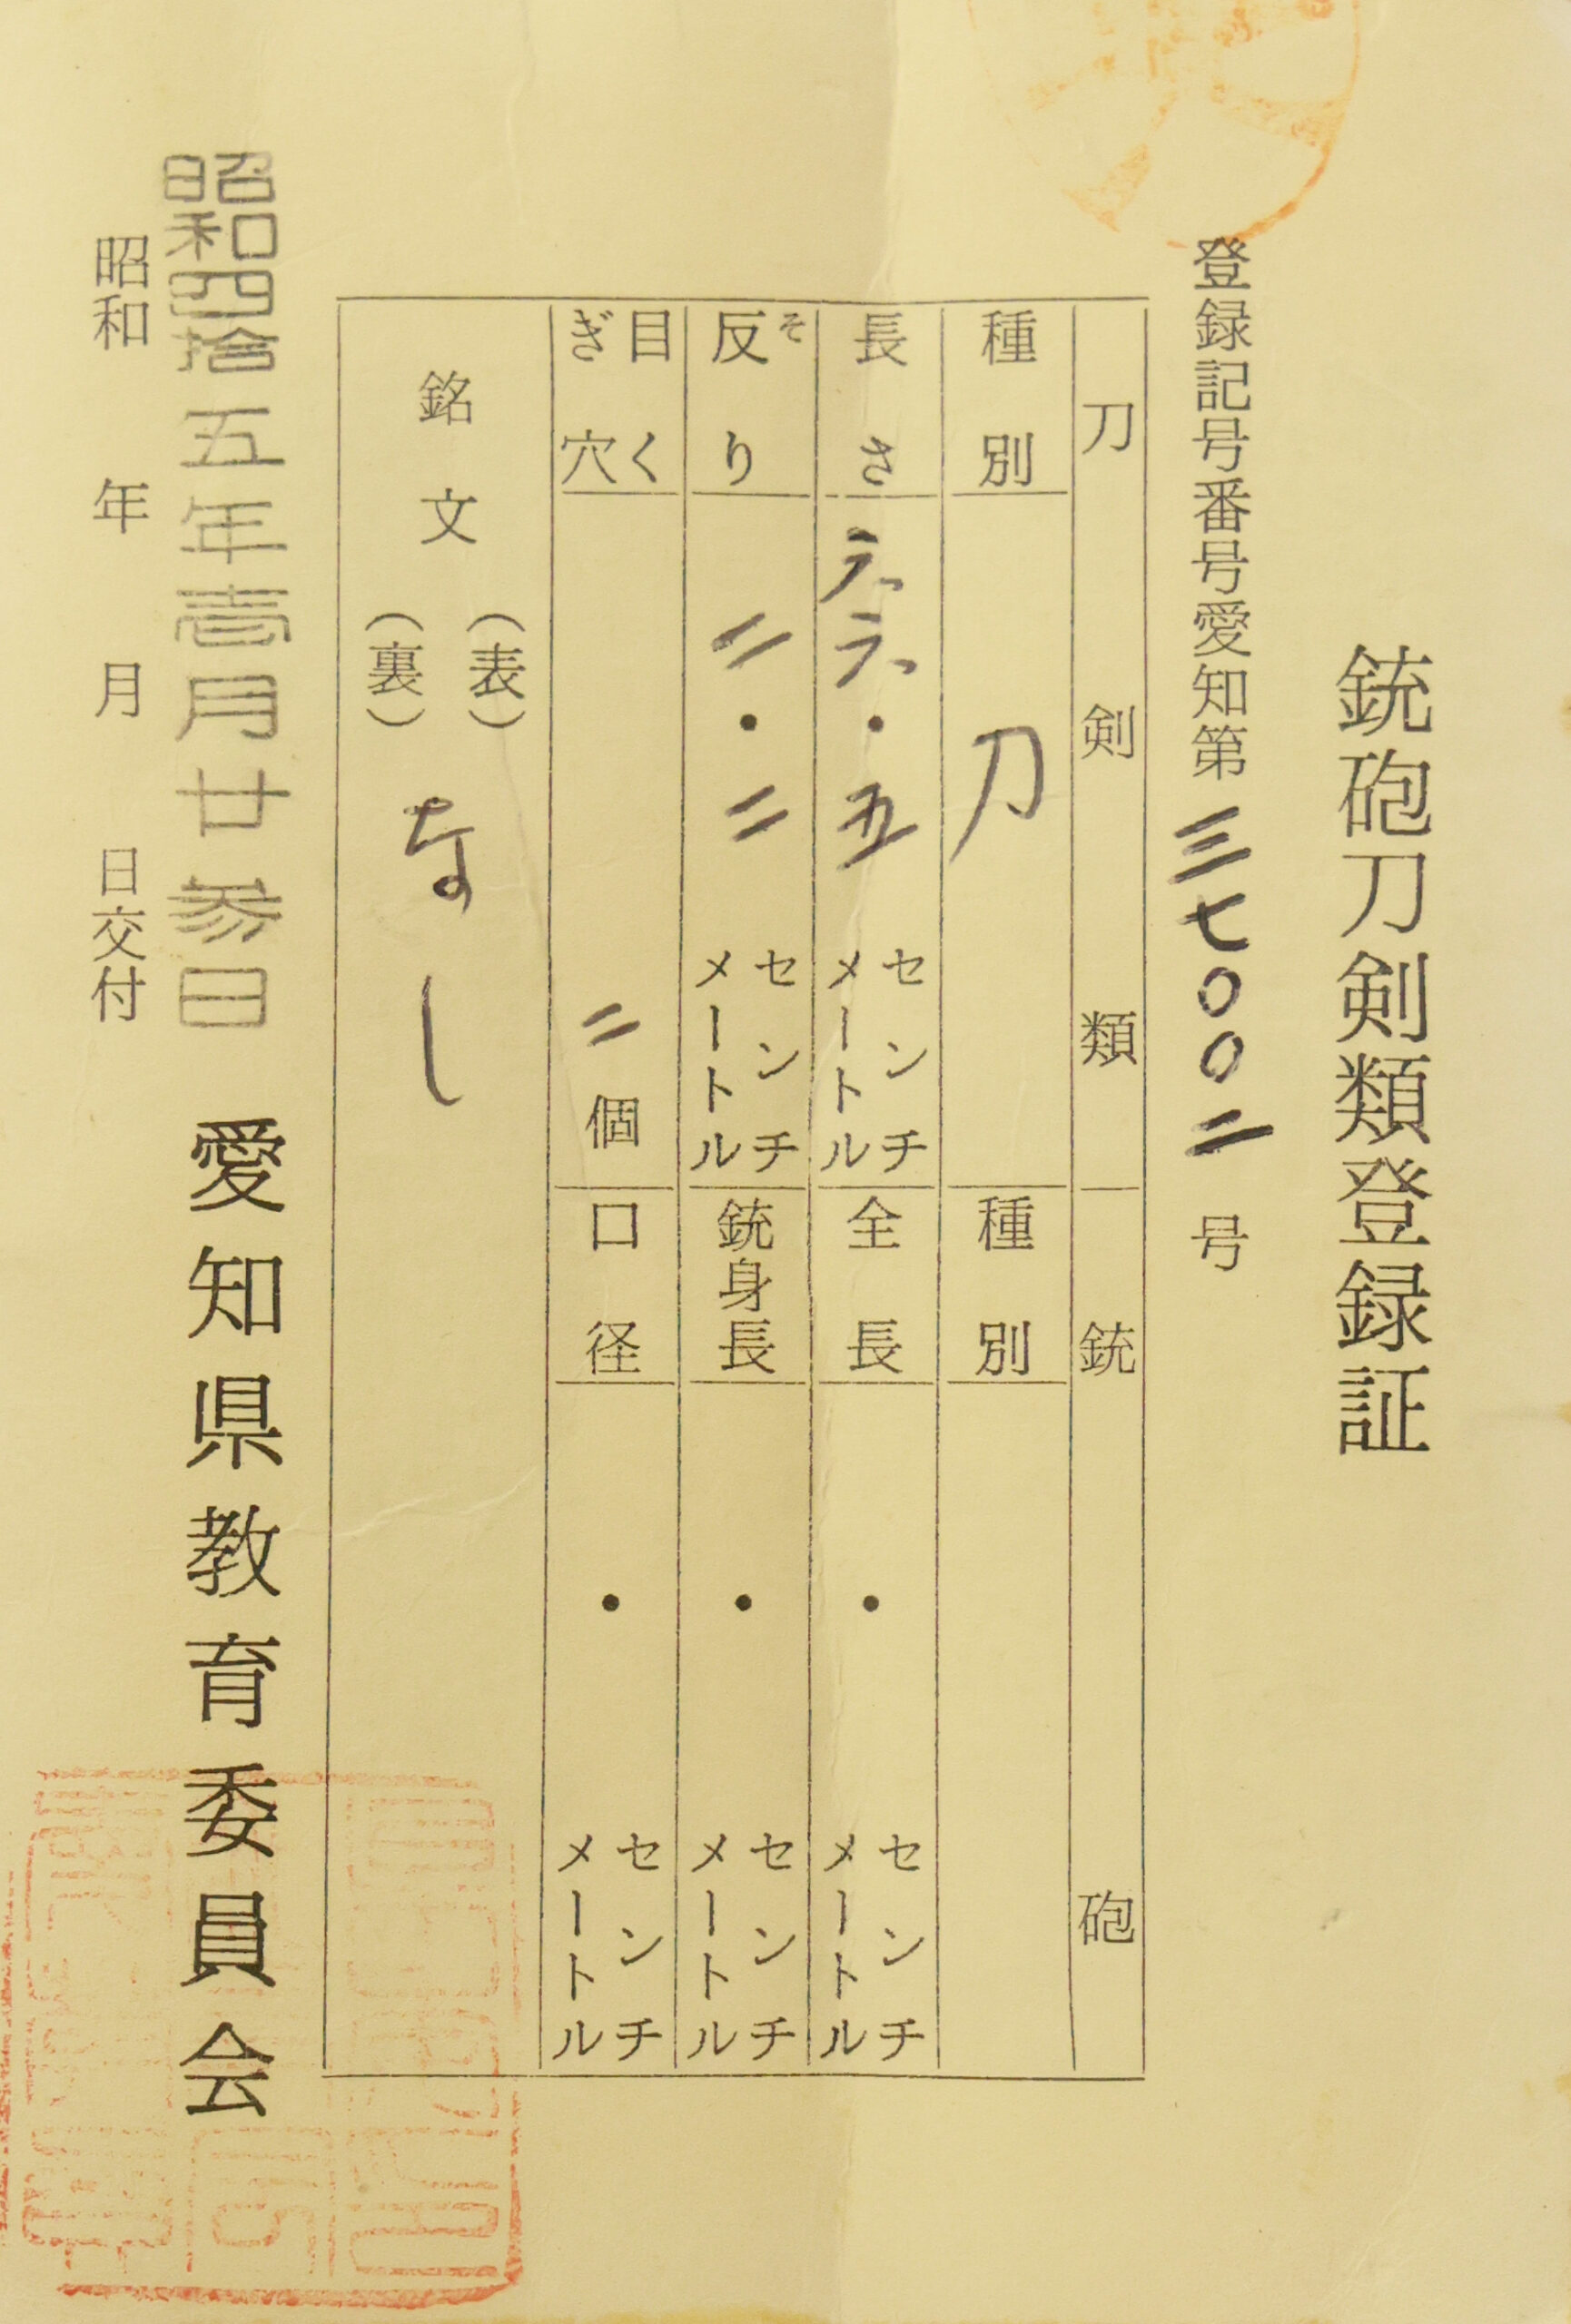 銃砲刀剣類登録証
登録記号番号愛知第三七〇〇二号
刀剣類
銃砲
種別 刀
種別
長さ 六六・五 センチメートル
全長 ・ センチメートル
反り(そ) 二・二 センチメートル
銃身長 ・ センチメートル
目くぎ穴 二個
口径 ・ センチメートル
銘文
(表) なし
(裏)
昭和四拾五年壱月廿参日
愛知県教育委員会
昭和 年 月 日交付